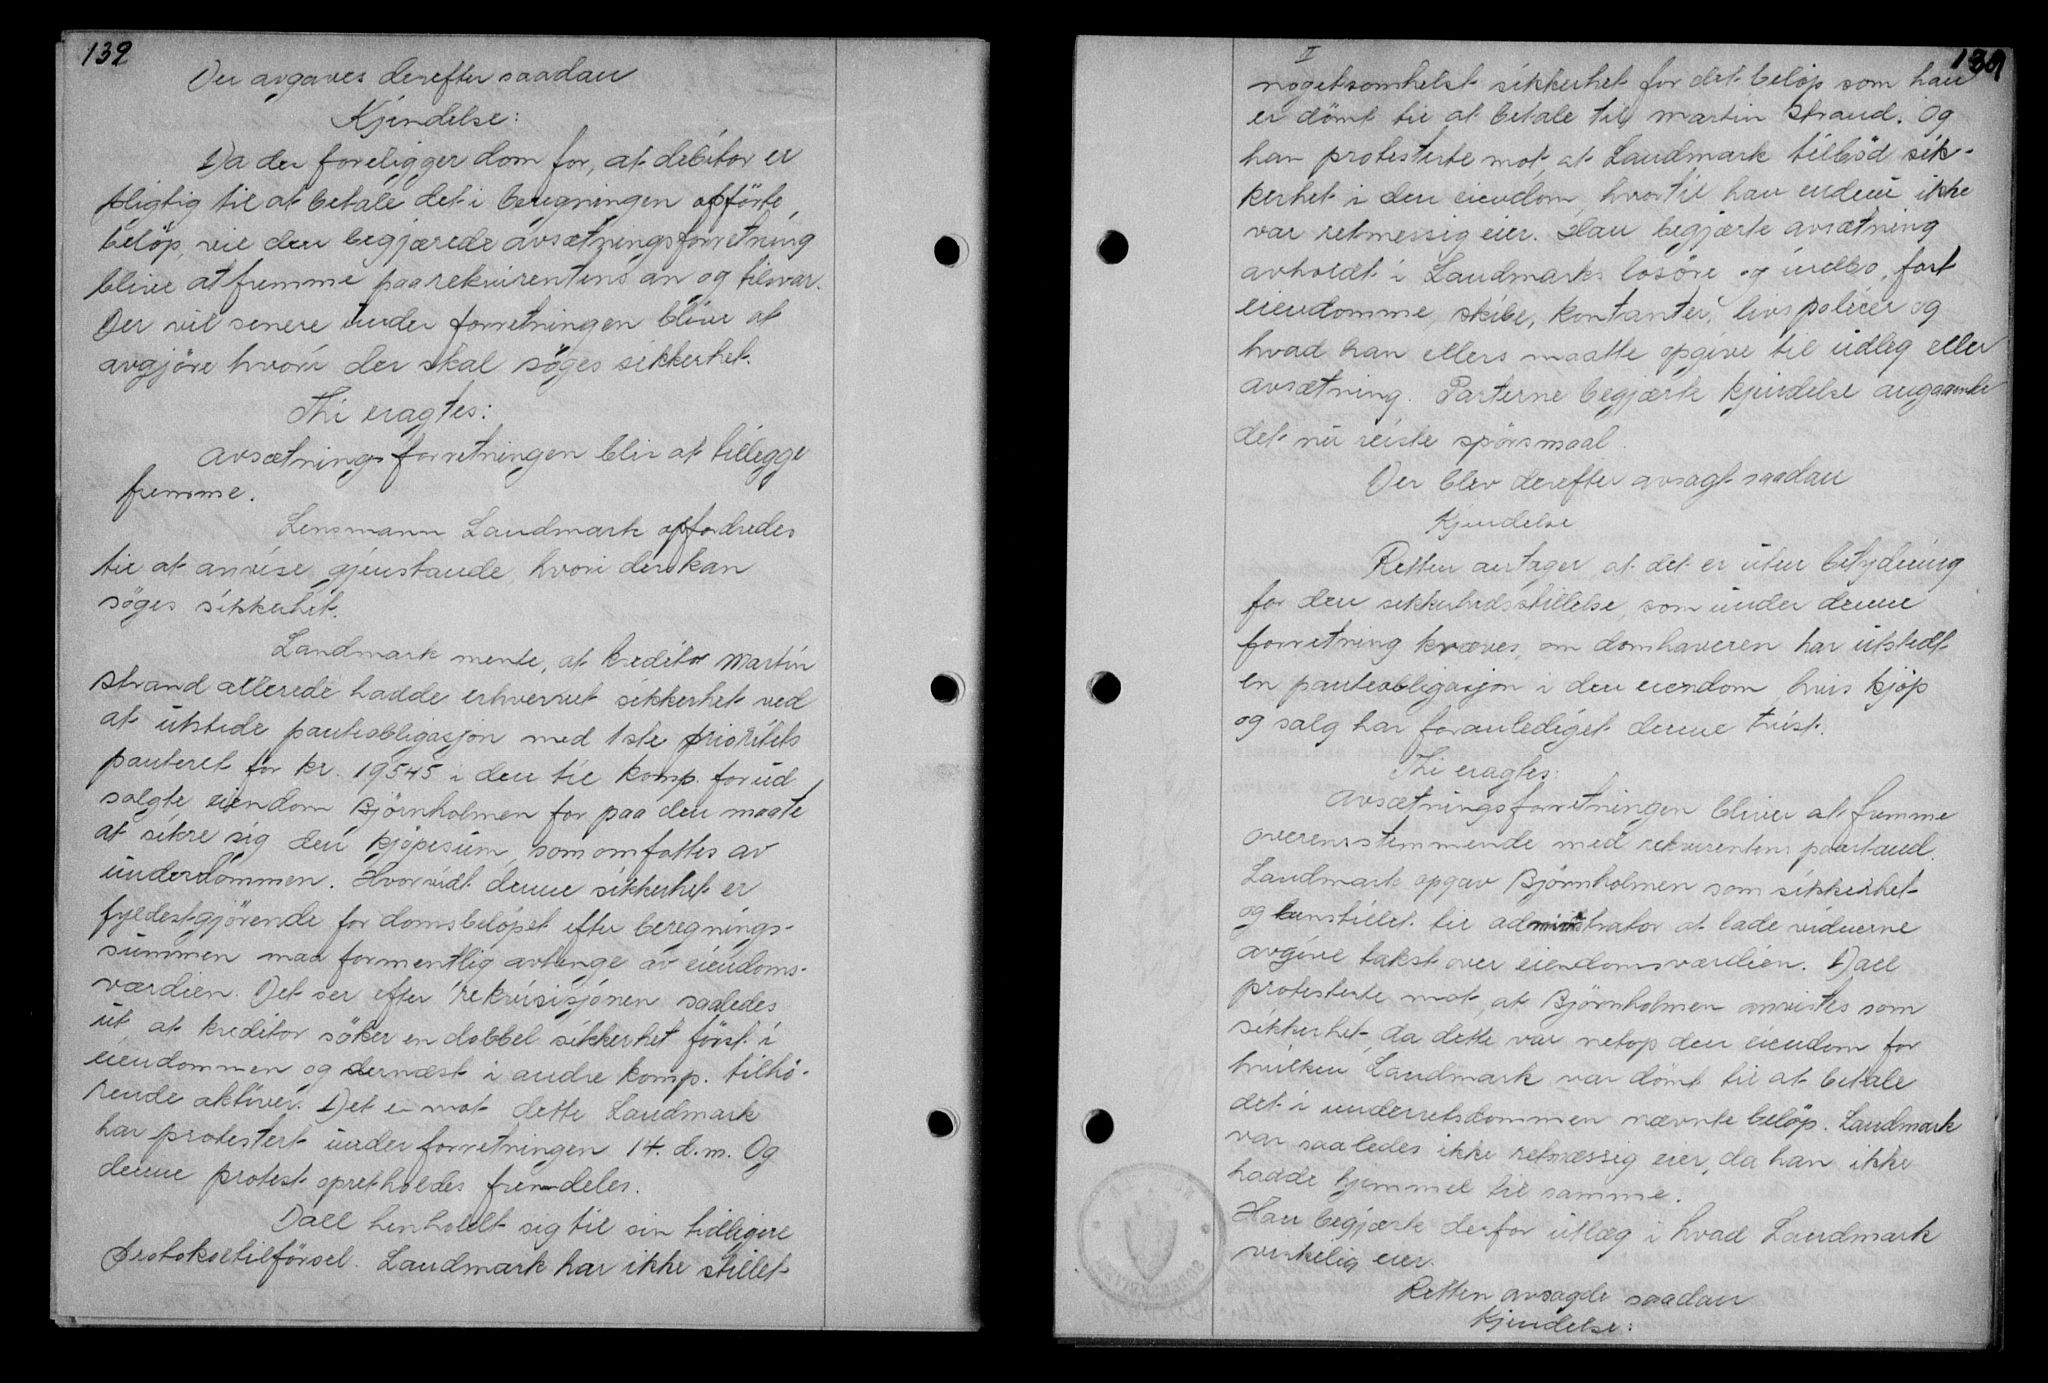 139
Der avgaves derefter saadan
Kjendelse:
Da der foreligger dom for, at debitor er
pligtig til at betale det i beregningen opförte
belöp, vil den begjærede avsætningsforretning
blive at fremme paa rekvirentens an og tilsvar.
Der vil senere under forretningen blive at
avgjöre hvori der skal söges sikkerhet.
Thi eragtes:
Avsætningsforretningen blir at tillegge
fremme.
Lensmann Landmark opfordredes
til at anvise gjenstande, hvori der kan
söges sikkerhet.
Landmark mente, at kreditor Martin
Strand allerede hadde erhvervet sikkerhet ved
at utstede panteobligasjon med 1ste prioritets
panteret for kr. 19545 i den til komp. forud
solgte eiendom Björnholmen for paa den maate
at sikre sig den kjöpesum, som omfattes av
underdommen. Hvorvidt denne sikkerhet er
fyldestgjörende for domsbelöpet efter beregnings-
summen maa formentlig avhenge av eiendoms-
værdien. Det ser efter rekvisisjonen saaledes
ut at kreditor söker en dobbel sikkerhet först i
eiendommen og dernæst i andre komp. tilhö-
rende aktiver. Det er mot dette Landmark
har protestert under forretningen 14. d.m. Og
denne protest opretholdes fremdeles.
Dall henholdt sig til sin tidligere
protokoltilförsel. Landmark har ikke stillet
II
139
nogetsomhelst sikkerhet for det belöp som han
er dömt til at betale til Martin Strand. Og
han protesterte mot, at Landmark tilböd sik-
kerhet i den eiendom, hvortil han endnu ikke
var retmessig eier. Han begjærte avsætning
avholdt i Landmarks lösöre og indbo, fast
eiendomme, skibe, kontanter, livspolicer og
hvad han ellers maatte opgive til udleg eller
avsætning. Parterne begjærte kjendelse angaaende
det nu reiste spörsmaal.
Der blev derefter avsagt saadan
Kjendelse
Retten antager at det er uten betydning
for den sikkerhedsstillelse, som under denne
forretning kræves, om domhaveren har utstedt
en panteobligasjon i den eiendom hvis kjöp
og salg har foranlediget denne tvist.
Thi eragtes:
Avsætningsforretningen bliver at fremme
overensstemmende med rekvirentens paastand.
Landmark opgav Björnholmen som sikkerhet
og henstillet til administrator at lade vidnerne
avgive takst over eiendomsværdien. Dall
protesterte mot, at Björnholmen anvistes som
sikkerhet, da dette var netop den eiendom for
hvilken Landmark var dömt til at betale
det i underretsdommen nævnte belöp. Landmark
var saaledes ikke retmæssig eier, da han ikke
hadde hjemmel til samme.
Han begjærte derfor utlæg i hvad Landmark
virkelig eier.
Retten avsagde saadan
Kjendelse: